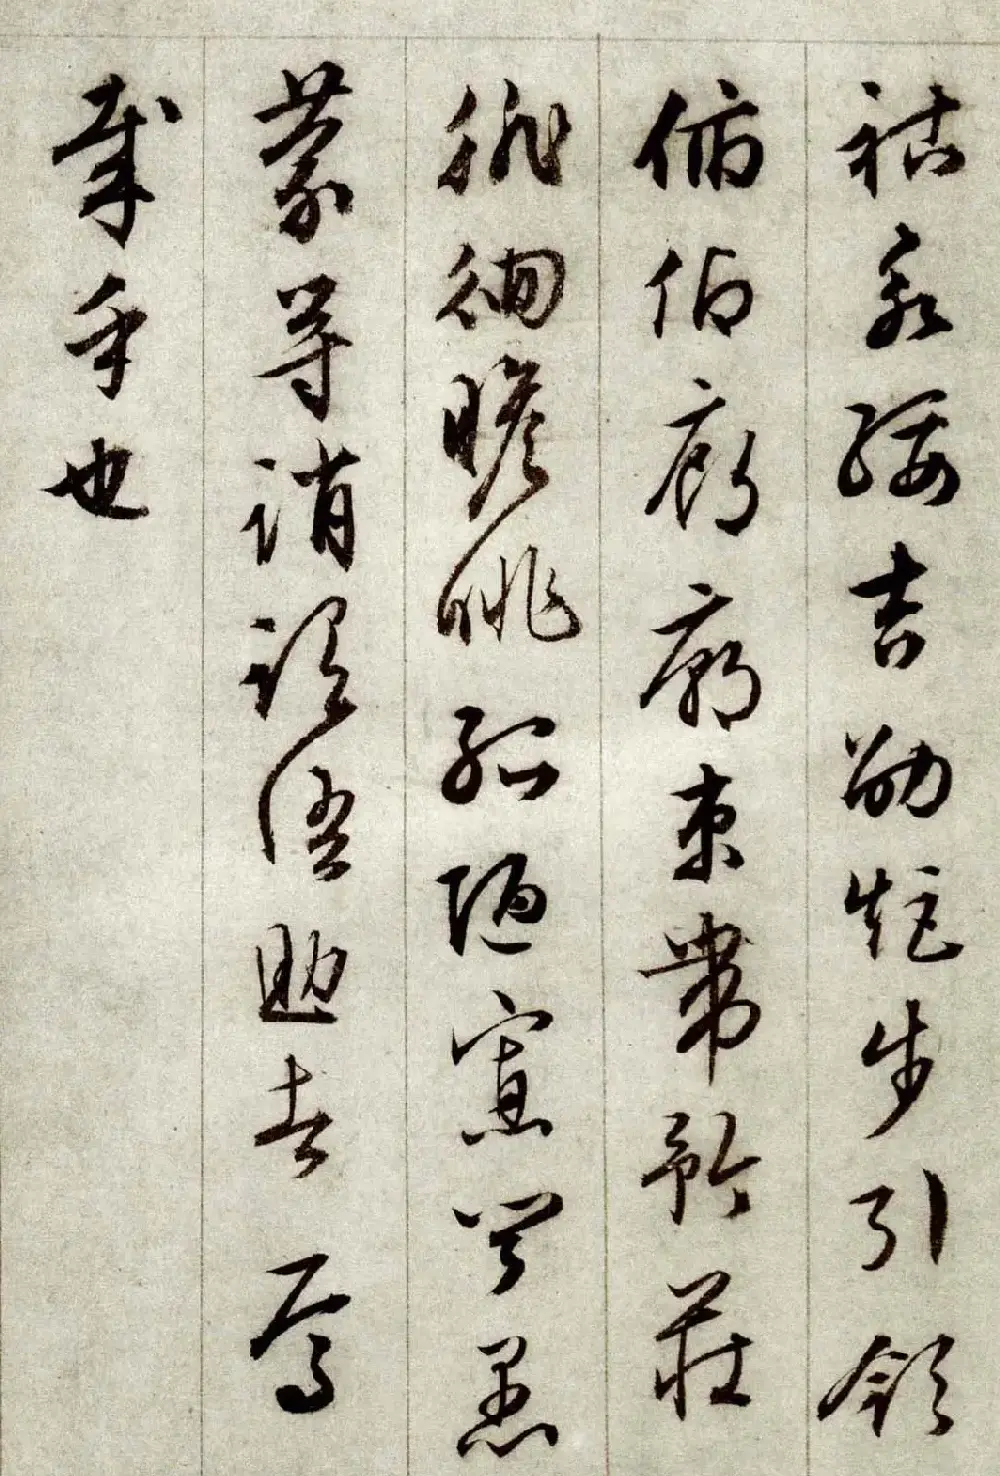 祜永绥吉劭矩步引领
俯仰廊廟束带矜莊
徘徊瞻眺孤陋寡聞愚
蒙等誚謂語助者焉
哉乎也